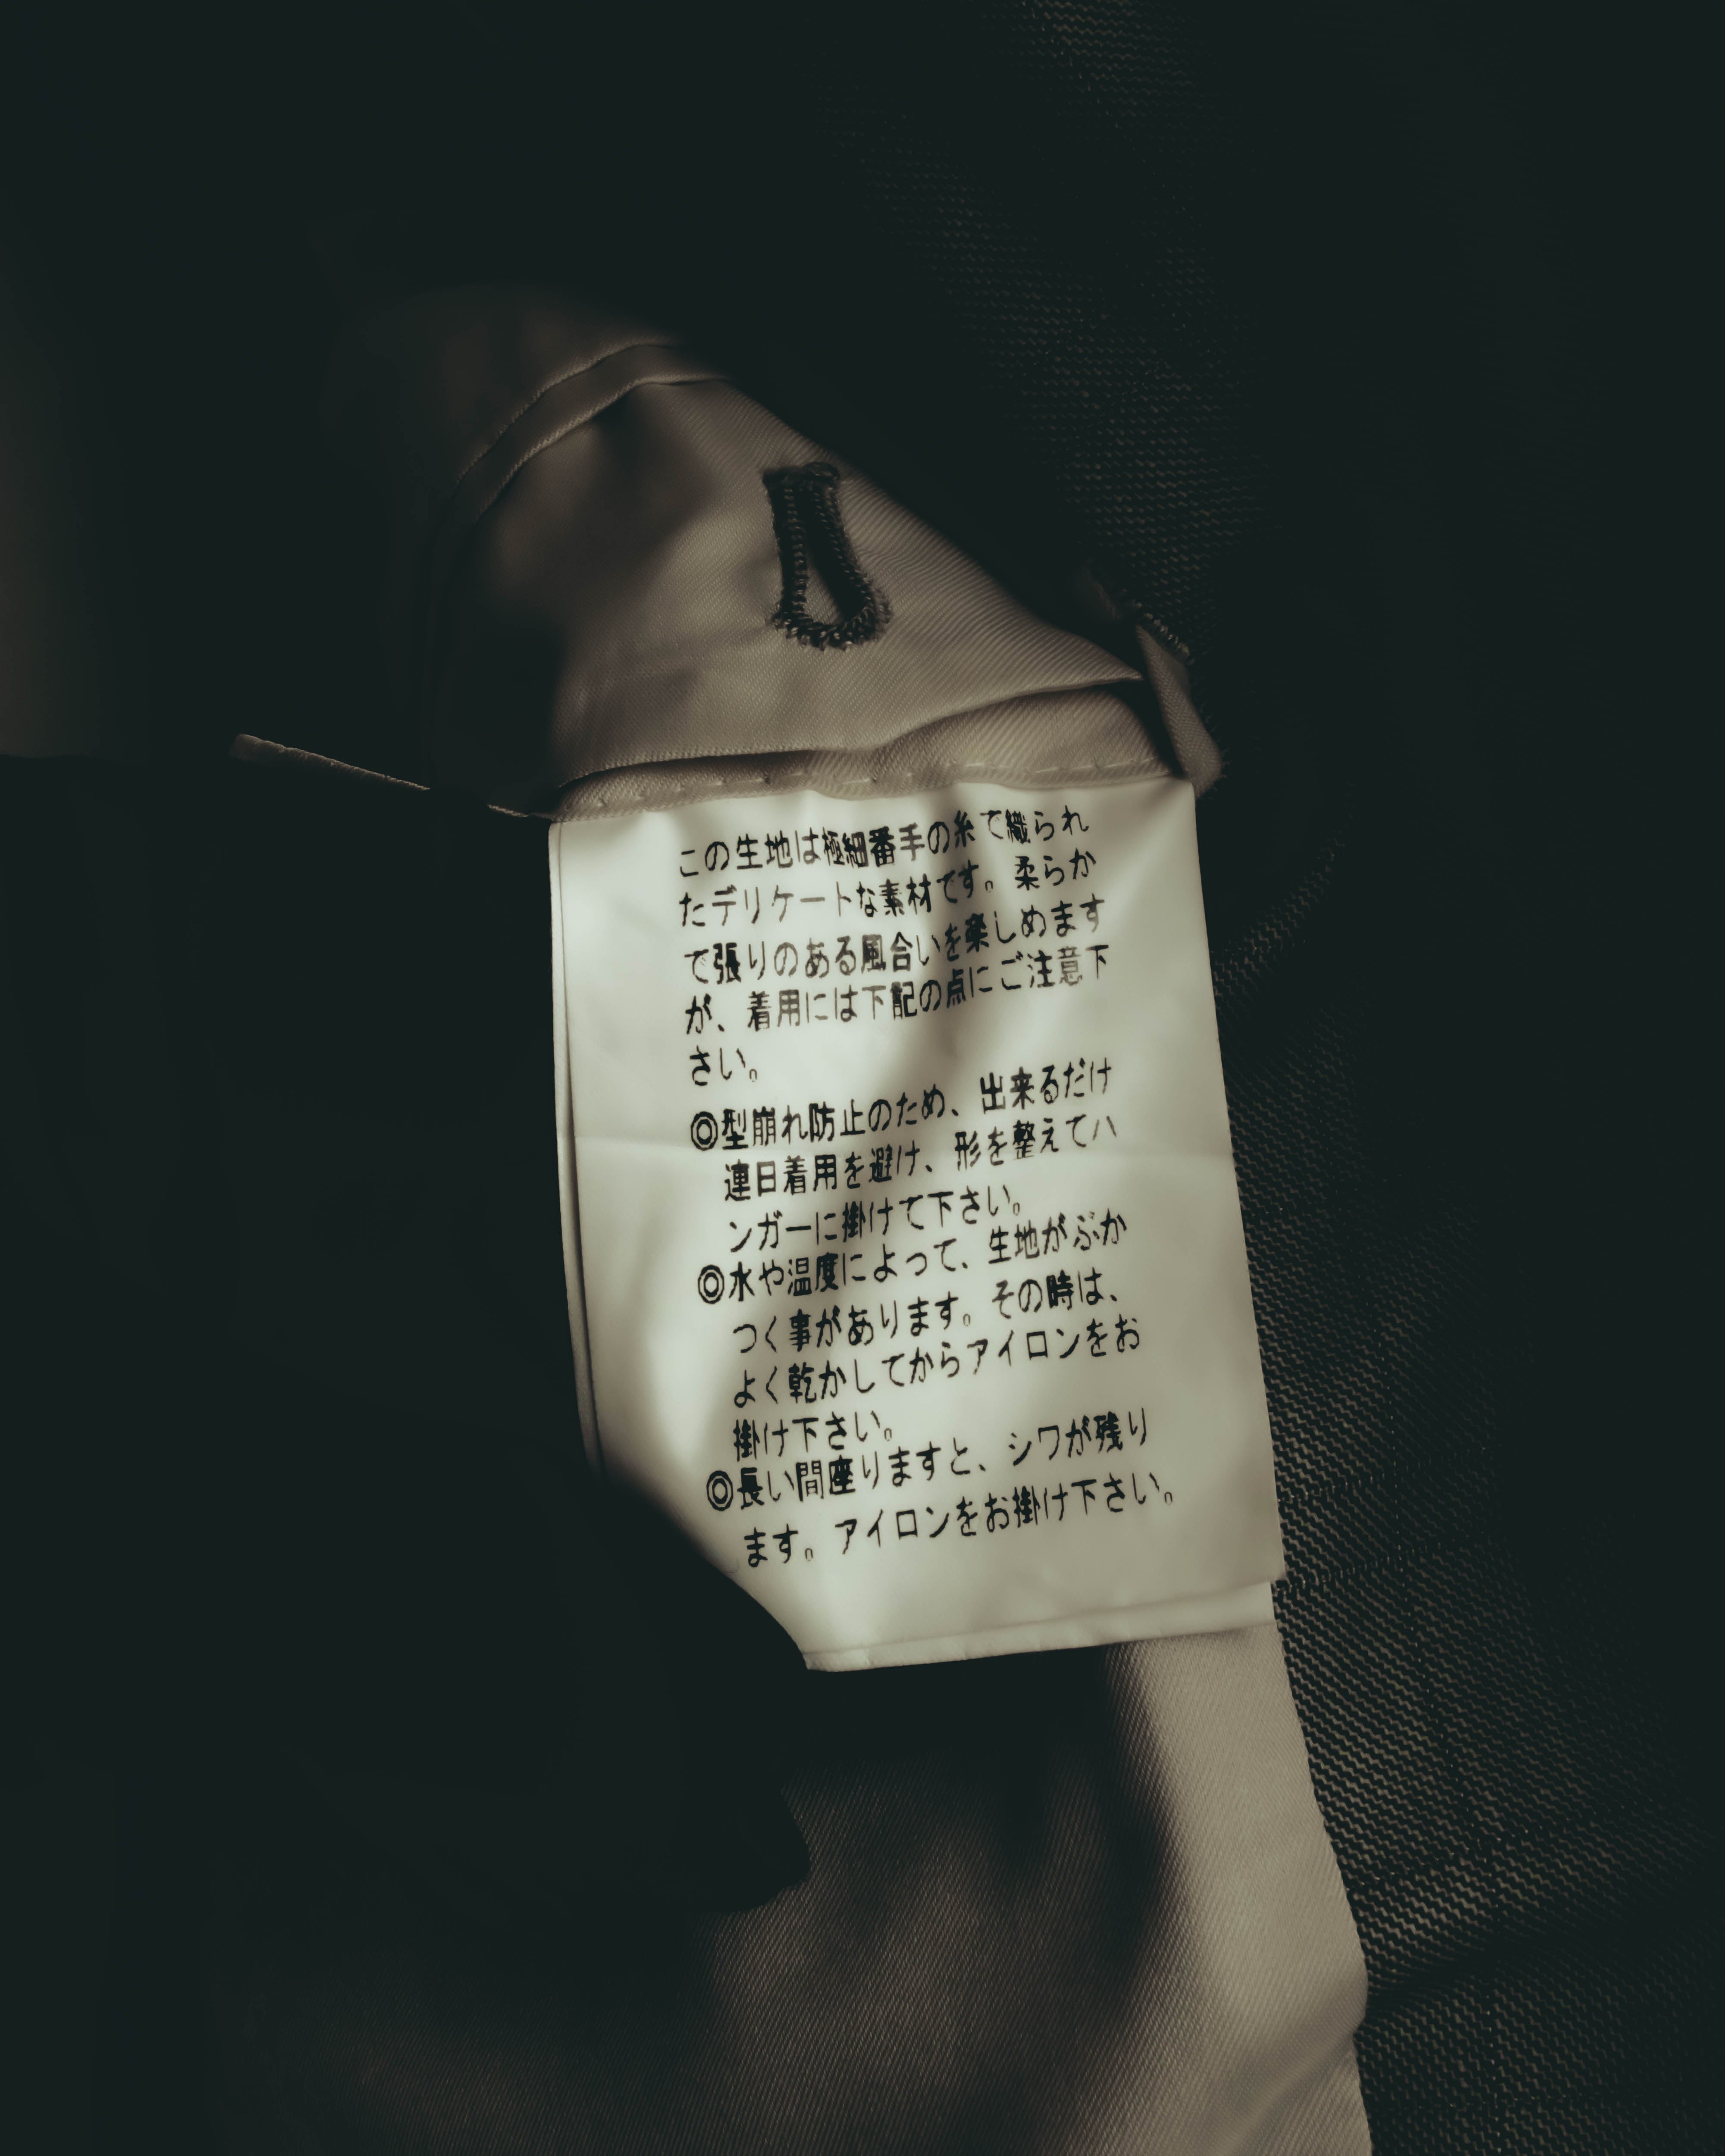 この生地は極細番手の糸で織られ
たデリケートな素材です。柔らか
で張りのある風合いを楽しめます
が、着用には下記の点にご注意下
さい。
◎型崩れ防止のため、出来るだけ
連日着用を避け、形を整えてハ
ンガーに掛けて下さい。
◎水や温度によって、生地がぶか
つく事があります。その時は、
よく乾かしてからアイロンをお
掛け下さい。
◎長い間座りますと、シワが残り
ます。アイロンをお掛け下さい。